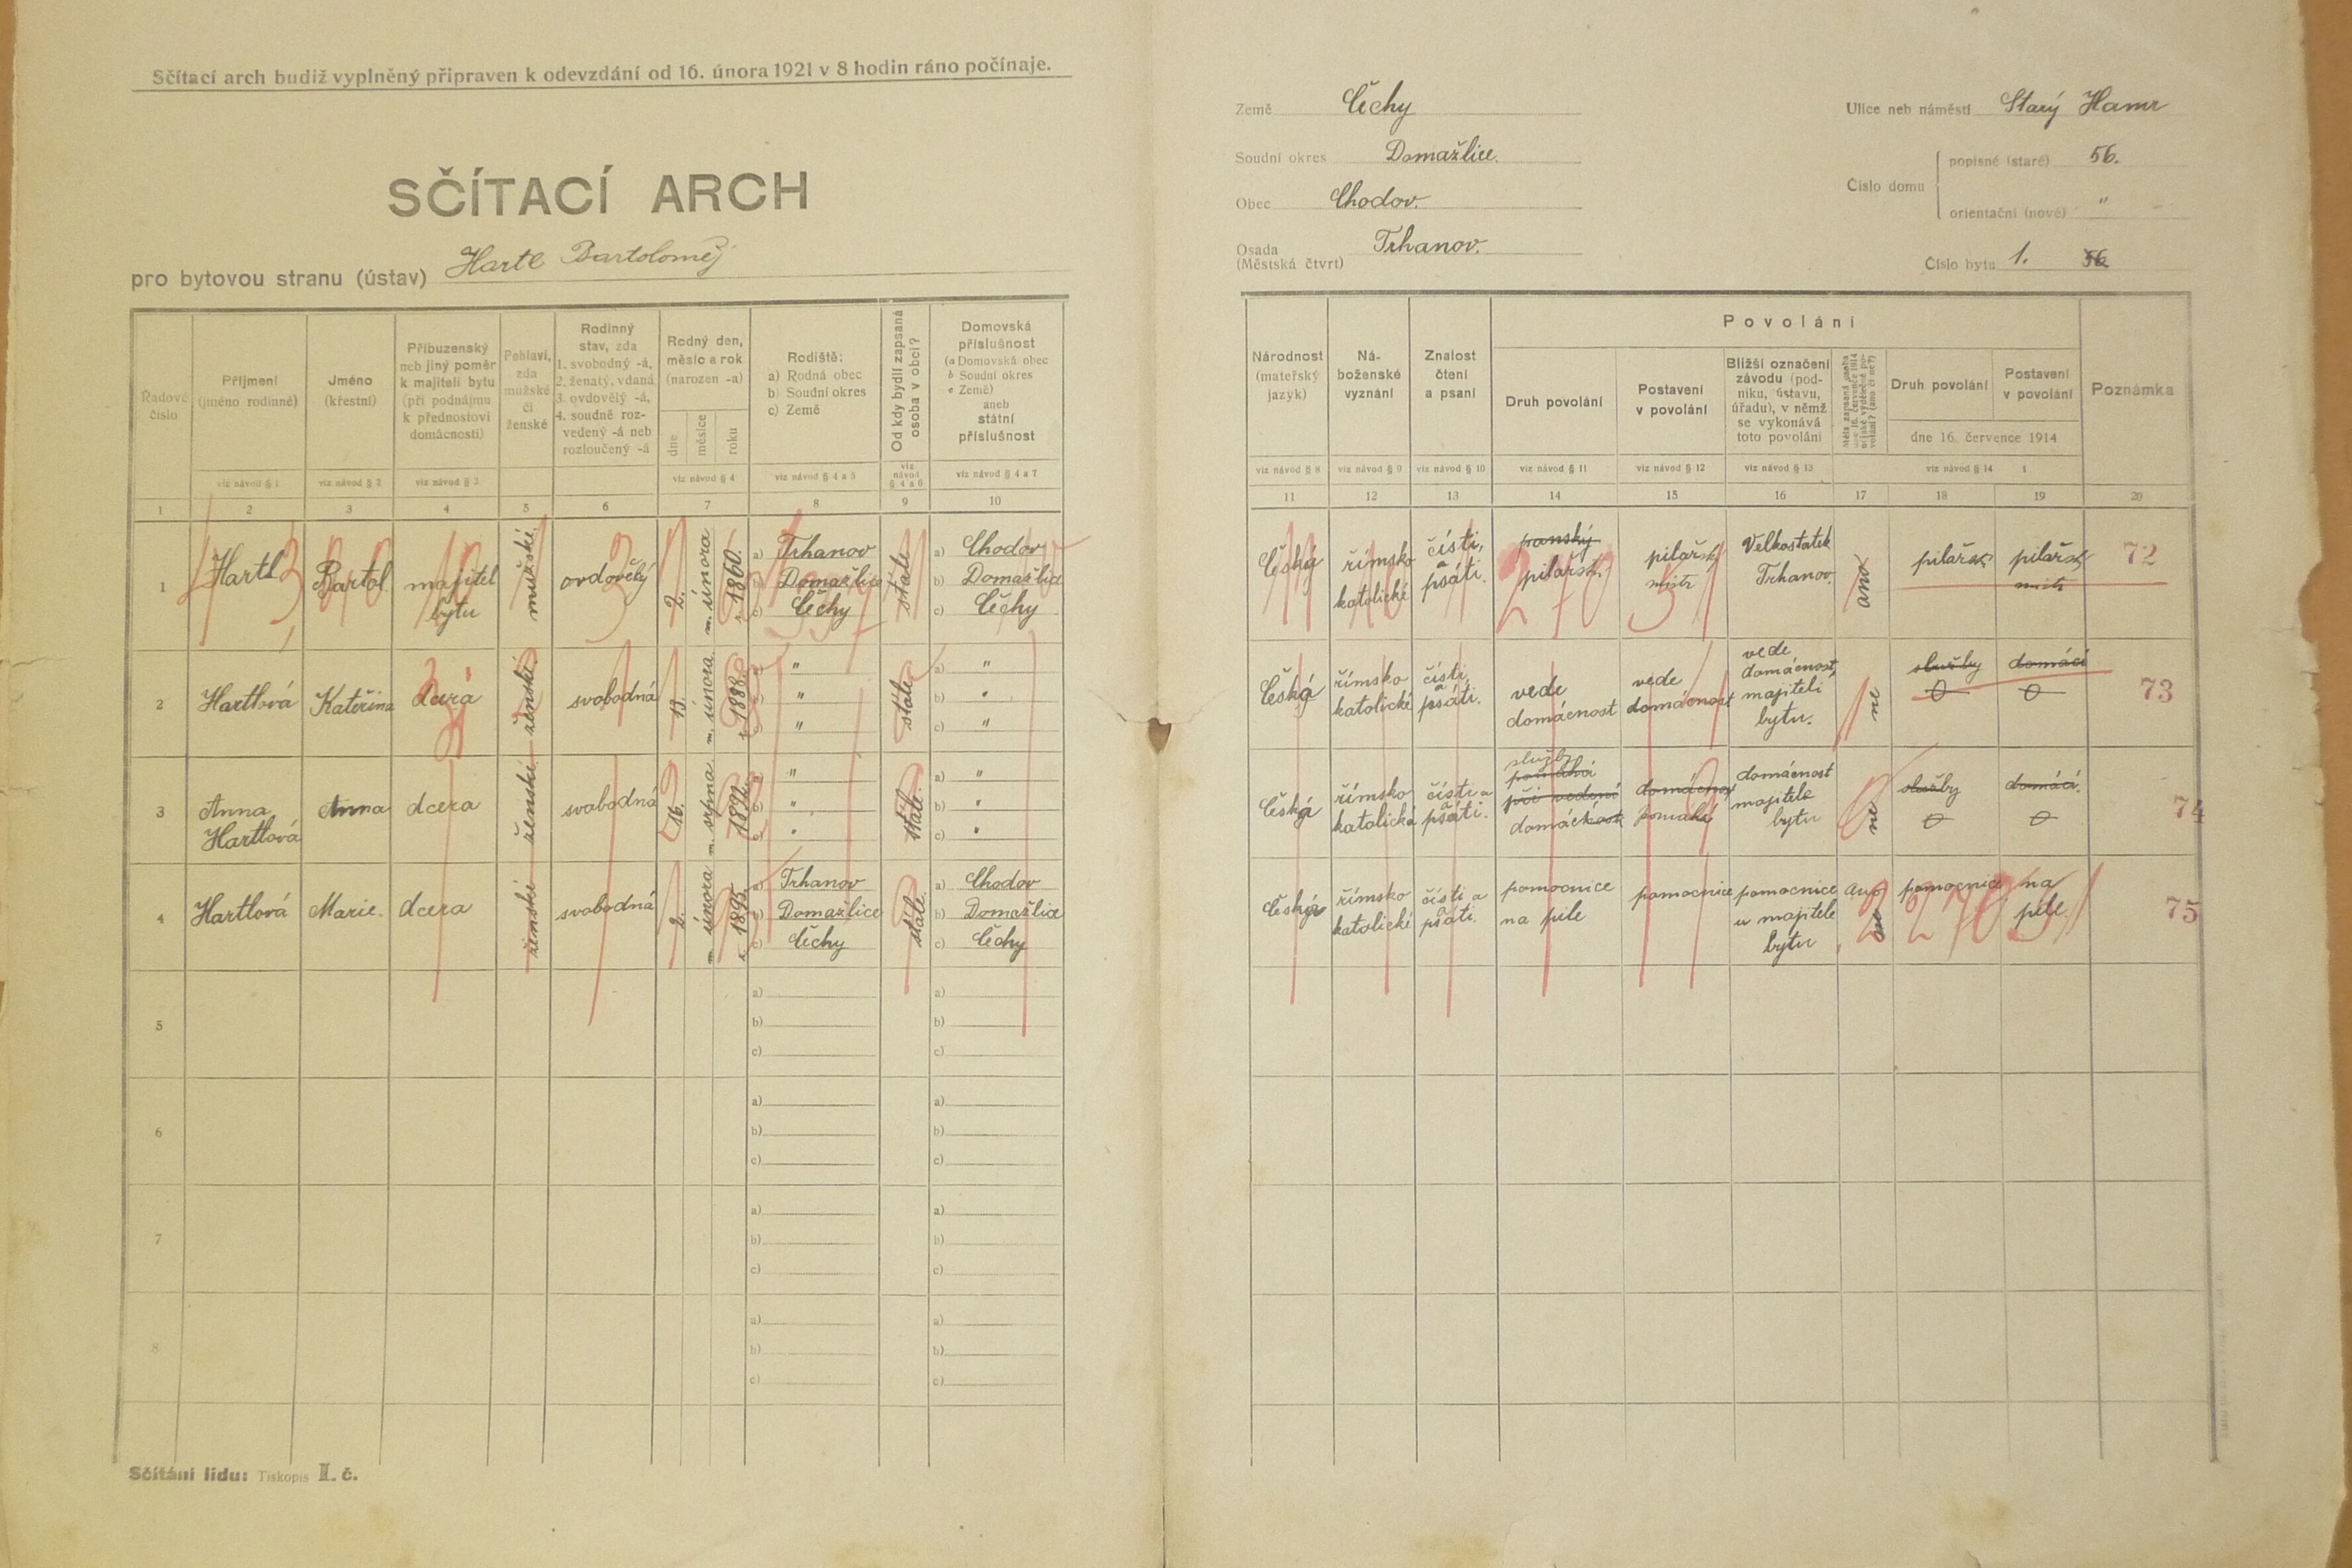 Sčítací arch budiž vyplněný připraven k odevzdání od 16. února 1921 v 8 hodin ráno počínaje.
SČÍTACÍ ARCH
pro bytovou stranu (ústav) Hartl Bartoloměj
Země Čechy
Soudní okres Domažlice.
Obec Chodov.
Osada Trhanov.
(Městská čtvrť)
Ulice neb náměstí Starý Hamr
Číslo domu
popisné (staré) 56.
orientační (nové) "
Číslo bytu 1. 56
Řadové číslo
Příjmení (jméno rodinné)
Jméno (křestní)
Příbuzenský neb jiný poměr k majiteli bytu (při podnájmu k přednostovi domácnosti)
Pohlaví, zda mužské či ženské
Rodinný stav, zda
1. svobodný -á,
2. ženatý, vdaná
3. ovdovělý -á,
4. soudně rozvedený -á neb rozloučený -á
Rodný den, měsíc a rok (narozen -a)
dne
měsíce
roku
Rodiště:
a) Rodná obec
b) Soudní okres
c) Země
Od kdy bydlí zapsaná osoba v obci?
Domovská příslušnost
(a Domovská obec
b Soudní okres
c Země)
aneb
státní
příslušnost
Národnost (mateřský jazyk)
Náboženské vyznání
Znalost čtení a psaní
Povolání
Druh povolání
Postavení v povolání
Bližší označení závodu (podniku, ústavu, úřadu), v němž se vykonává toto povolání
Druh povolání
Postavení v povolání
dne 16. července 1914
Poznámka
viz návod § 1
viz návod § 2
viz návod § 3
viz návod § 4
viz návod § 4 a 5
viz návod § 4 a 6
viz návod § 4 a 7
viz návod § 8
viz návod § 9
viz návod § 10
viz návod § 11
viz návod § 12
viz návod § 13
viz návod § 14
1 2 3 4 5 6 7 8 9 10 11 12 13 14 15 16 17 18 19 20
1 Hartl Bartol majitel bytu mužské ovdovělý 2. m. února r. 1860.
a) Trhanov
b) Domažlice
c) Čechy
stále
a) Chodov
b) Domažlice
c) Čechy
Česká římsko katolické čísti, a psáti. panský pilařství pilařský mistr Velkostatek Trhanov. ano pilařství pilařský mistr 72
2 Hartlová Kateřina dcera ženské svobodná 13. m. února r. 1888.
a) "
b) "
c) "
stále
a) "
b) "
c) "
Česká římsko katolické čísti a psáti. vede domácnost vede domácnost vede domácnost majiteli bytu. ne služby domácí 0 0 73
3 Anna Hartlová Anna dcera ženské svobodná 16. m. srpna 1892.
a) "
b) "
c) "
stále.
a) "
b) "
c) "
Česká římsko katolická čísti a psáti. služby pomáhá při vedení domácnosti domácnost pomáhá domácnost majitele bytu ne služby domácí. 0 0 74
4 Hartlová Marie. dcera ženské svobodná 2. m. února r. 1895.
a) Trhanov
b) Domažlice
c) Čechy
stále.
a) Chodov
b) Domažlice
c) Čechy
Česká římsko katolické čísti a psáti. pomocnice na pile pomocnice pomocnice u majitele bytu ano pomocnice na pile. 75
5
a)
b)
c)
a)
b)
c)
6
a)
b)
c)
a)
b)
c)
7
a)
b)
c)
a)
b)
c)
8
a)
b)
c)
a)
b)
c)
Sčítání lidu: Tiskopis II. č.